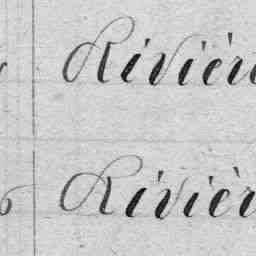 Rivièr
Rivièr